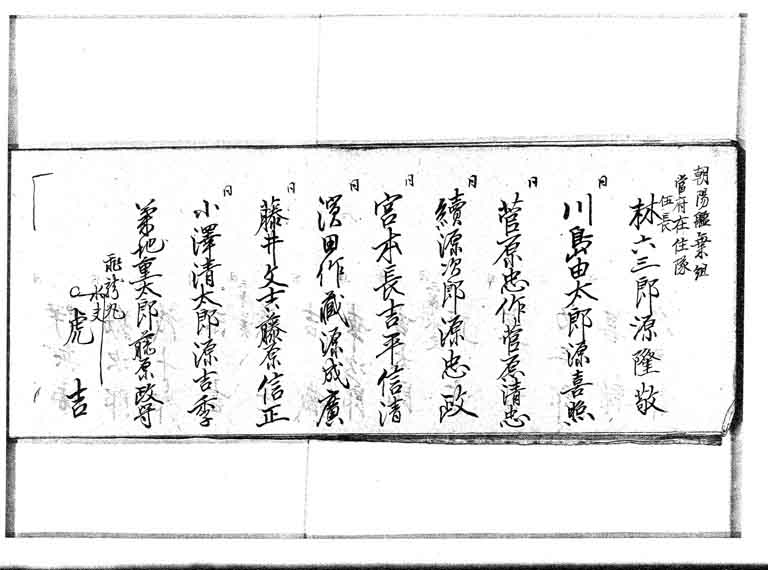 朝陽艦乗組
當府在住隊
伍長
林六三郎源隆敬
同
川島由太郎源喜照
同
菅原忠作菅原清忠
同
續源次郎源忠政
同
宮本長吉平信清
同
濱田作藏源成廣
同
藤井文吉藤原信正
同
小澤清太郎源吉季
菊地重太郎藤原政守
水夫
虎吉